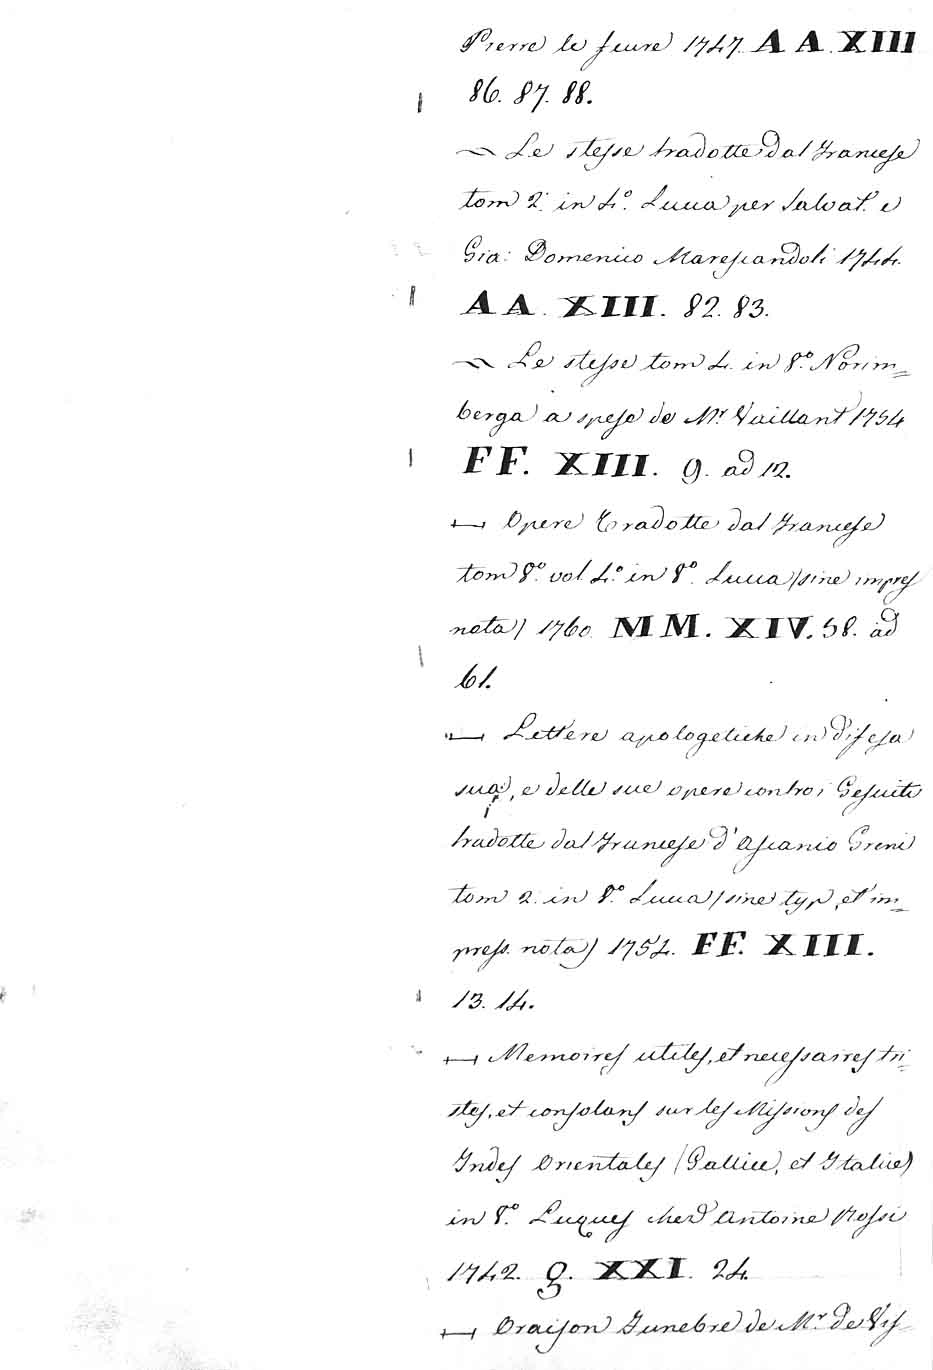 Pierre le feure 1747. AA. XIII
86. 87. 88.
— Le stesse tradotte dal Francese
tom 2. in 4.º Lucca per Salvat.e e
Gia: Domenico Marescandoli 1744.
AA. XIII. 82. 83.
— Le stesse tom 4. in 8.º Norim=
berga a spese de Mr. Vaillant 1754
FF. XIII. 9. ad 12.
— Opere Tradotte dal Francese
tom 8.º vol 4.º in 8.º Lucca (sine impres
nota) 1760. MM. XIV. 58. ad
61.
— Lettere apologetiche in difesa
sua, e delle sue opere contro i Gesuiti
tradotte dal Francese d'Ascanio Greni
tom 2. in 8.º Lucca (sine typ, et im=
press. nota) 1752. FF. XIII.
13. 14.
— Memoires utiles, et necessaires tri=
stes, et consolans sur les Missions des
Indes Orientales (Gallice, et Italice)
in 8.º Luques chez Antoine Rossi
1742. g. XXI. 24.
— Oraison Funebre de Mr. de Vis=